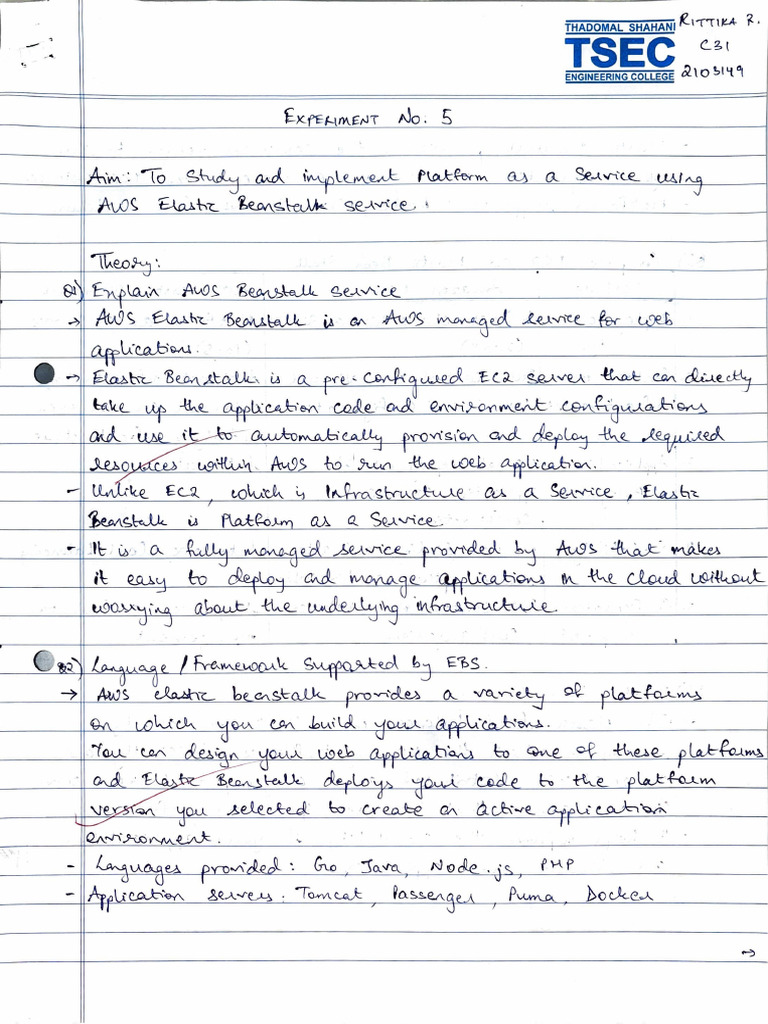 THADOMAL SHAHANI
TSEC
ENGINEERING COLLEGE
RITTIKA R.
C31
2103149
EXPERIMENT NO. 5
Aim: To study and implement Platform as a Service using
AWS Elastic Beanstalk service.
Theory:
Q1) Explain AWS Beanstalk Service
→ AWS Elastic Beanstalk is an AWS managed service for web
applications.
→ Elastic Beanstalk is a pre-configured EC2 server that can directly
take up the application code and environment configurations
and use it to automatically provision and deploy the required
resources within AWS to run the web application.
- Unlike EC2, which is Infrastructure as a Service, Elastic
Beanstalk is Platform as a Service.
- It is a fully managed service provided by AWS that makes
it easy to deploy and manage applications in the cloud without
worrying about the underlying infrastructure.
Q2) Language / Framework Supported by EBS.
→ AWS elastic beanstalk provides a variety of platforms
on which you can build your applications.
You can design your web applications to one of these platforms
and Elastic Beanstalk deploys your code to the platform
version you selected to create an active application
environment.
- Languages provided: Go, Java, Node.js, PHP
- Application servers: Tomcat, Passenger, Puma, Docker
→